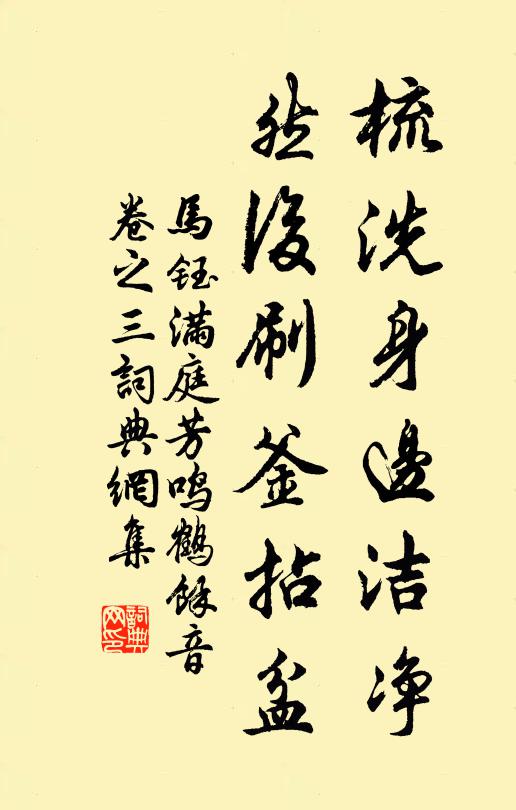 梳洗身邊洁净
然後刷釜拈盆
馬鈺滿庭芳鳴鶴餘音
卷之三詞典網集
詞典網印